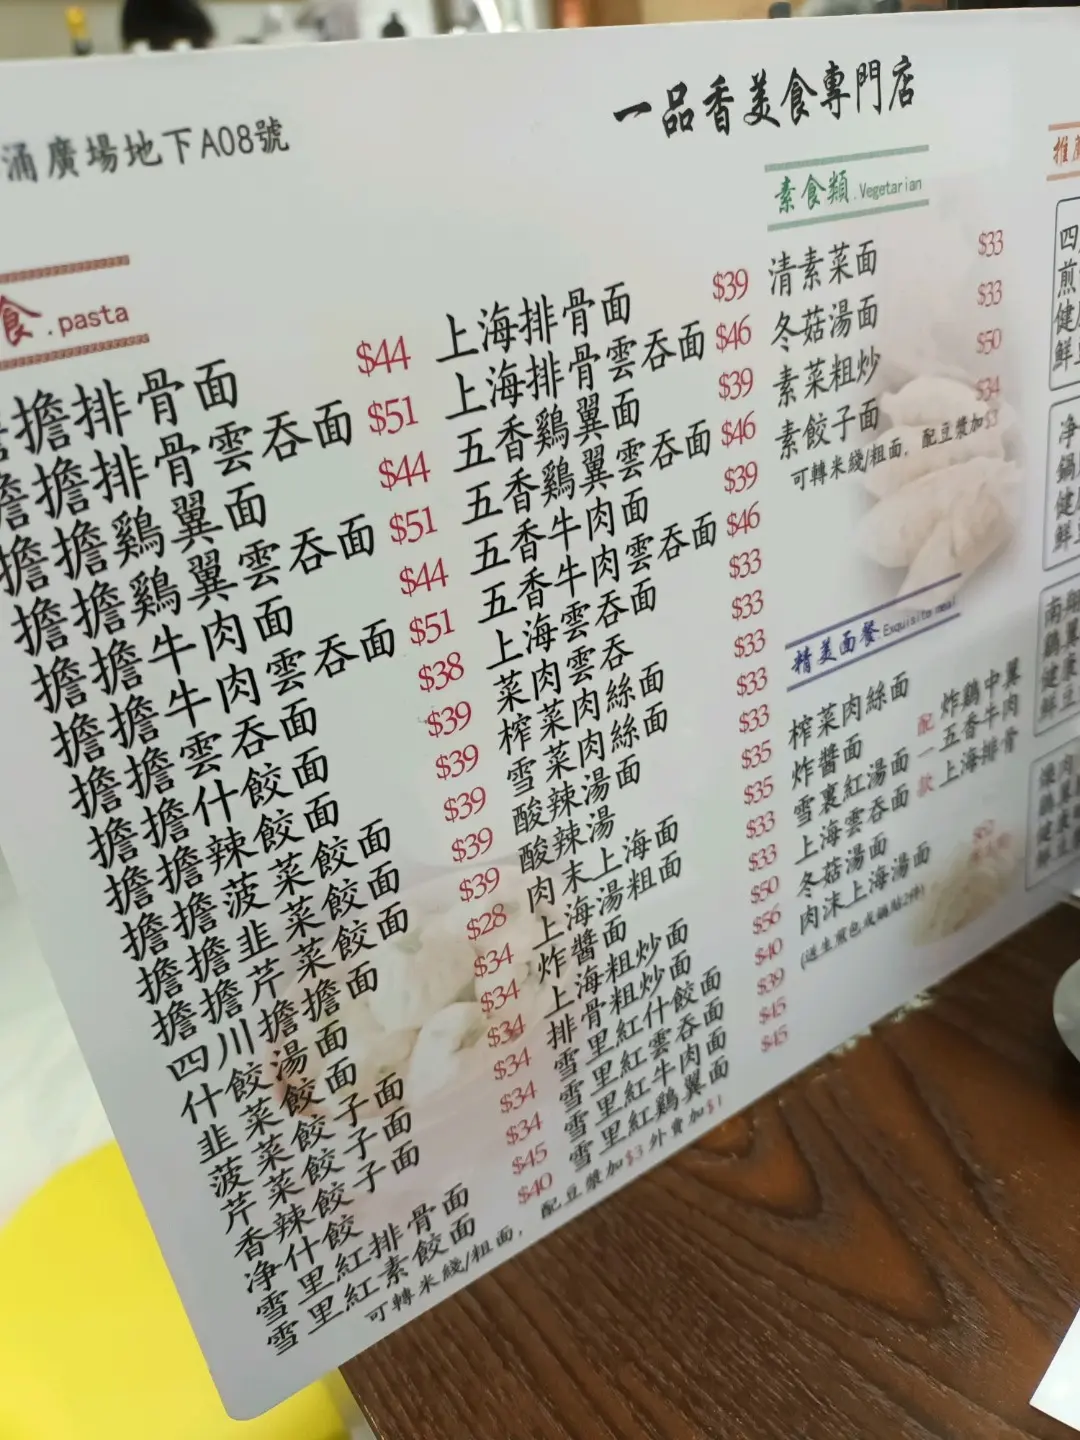 涌廣場地下A08號
一品香美食專門店
食.pasta
擔排骨面 $44
擔擔排骨雲吞面 $51
擔擔鷄翼面 $44
擔擔鷄翼雲吞面 $51
擔擔牛肉面 $44
擔擔牛肉雲吞面 $51
擔擔雲吞面 $38
擔擔什餃面 $39
擔擔辣餃面 $39
擔擔菠菜餃面 $39
擔擔韭菜餃面 $39
擔擔芹菜餃面 $39
四川擔擔面 $28
什餃湯面 $34
韭菜餃面 $34
菠菜餃子面 $34
芹菜餃子面 $34
香辣餃子面 $34
净什餃 $34
雪里紅排骨面 $45
雪里紅素餃面 $40
可轉米綫/粗面，配豆漿加$3外賣加$1
上海排骨面 $39
上海排骨雲吞面 $46
五香鷄翼面 $39
五香鷄翼雲吞面 $46
五香牛肉面 $39
五香牛肉雲吞面 $46
上海雲吞面 $33
菜肉雲吞 $33
榨菜肉絲面 $33
雪菜肉絲面 $33
酸辣湯面 $33
酸辣湯 $35
肉末上海面 $35
上海湯粗面 $33
炸醬面 $33
上海粗炒面 $50
排骨粗炒面 $56
雪里紅什餃面 $40
雪里紅雲吞面 $39
雪里紅牛肉面 $45
雪里紅鷄翼面 $45
素食類.Vegetarian
清素菜面 $33
冬菇湯面 $33
素菜粗炒 $50
素餃子面 $34
可轉米綫/粗面，配豆漿加$3
精美面餐 Exquisite meal
榨菜肉絲面
炸醬面
雪裏紅湯面
上海雲吞面
冬菇湯面
肉沫上海湯面
(送生煎包或鍋貼2件)
配一款
炸鷄中翼
五香牛肉
上海排骨
推
四
煎
健
鮮
净
鍋
健
鮮
南翔
鷄翼
健康
鮮豆